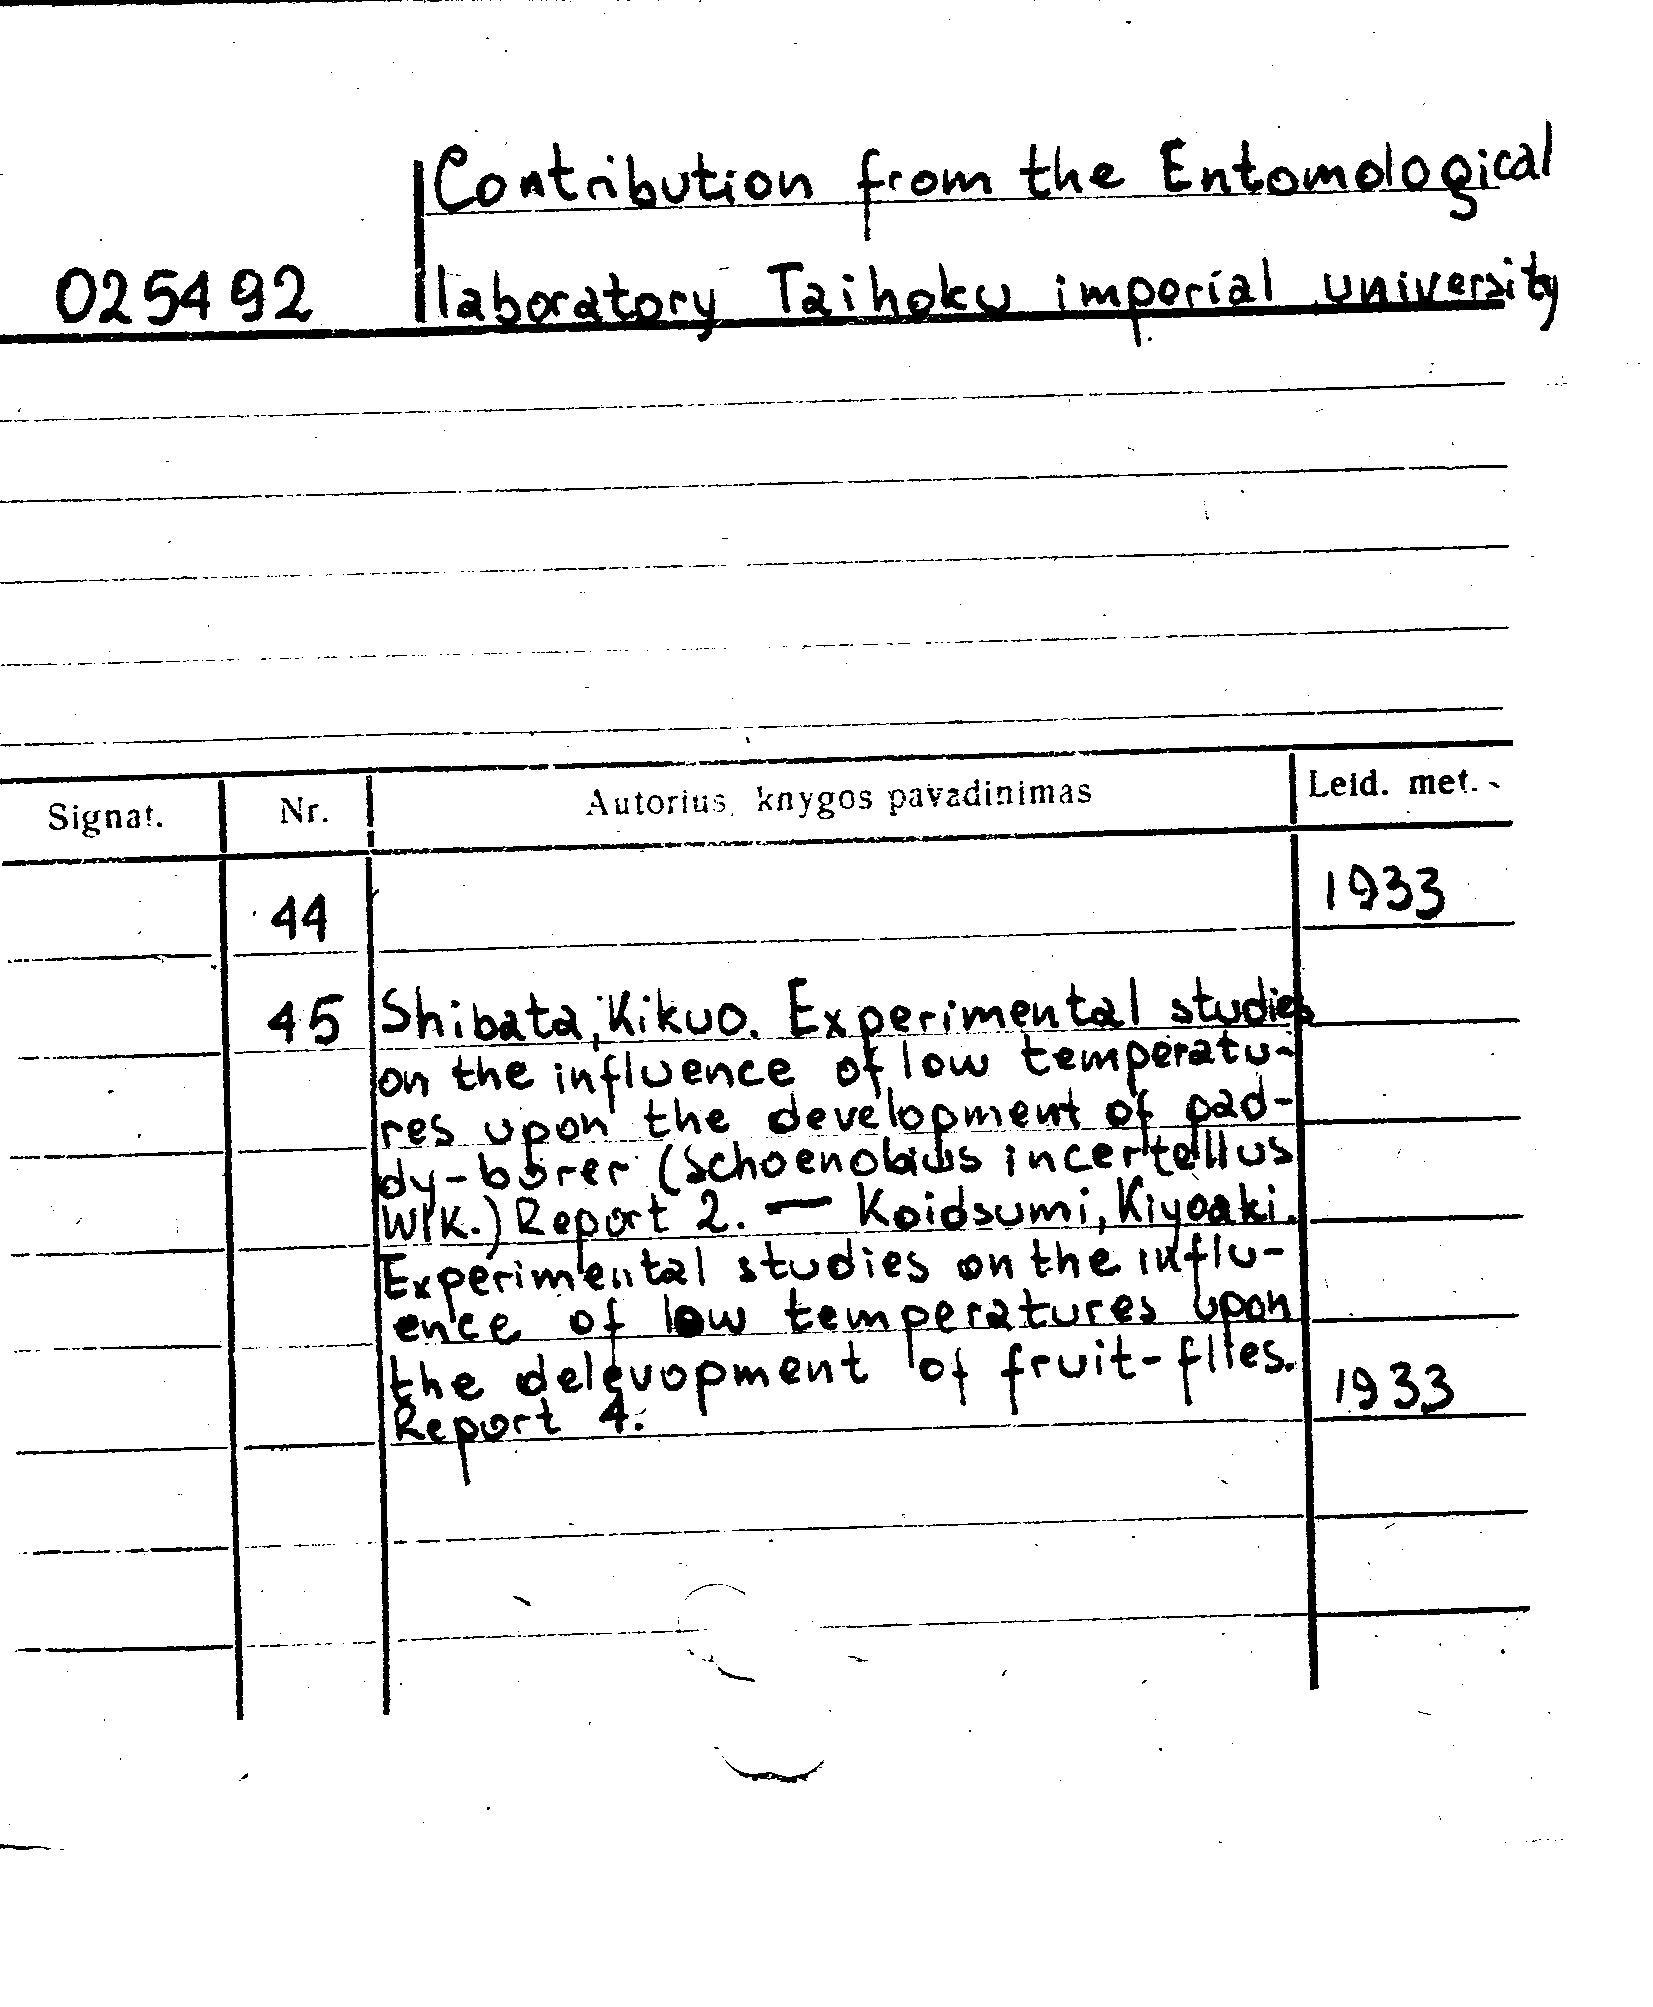 Contribution from the Entomological
025492 laboratory Taihoku imperial university
Signat. Nr. Autorius, knygos pavadinimas Leid. met.
44 1933
45 Shibata, Kikuo. Experimental studies
on the influence of low temperatu-
res upon the development of pad-
dy-borer (Schoenobius incertellus
Wlk.) Report 2. — Koidsumi, Kiyoaki.
Experimental studies on the influ-
ence of low temperatures upon
the delevopment of fruit-flies. 1933
Report 4.